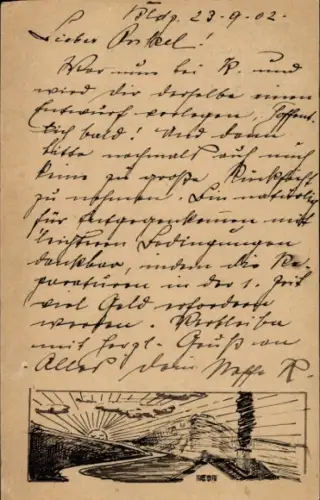 Bldg. 23-9-02.
Lieber Onkel!
War nun bei R. und
wird dir derselbe einen
Entwurf vorlegen, hoffent-
lich bald! Und dann
bitte nochmals auf mich
keine zu große Rücksicht
zu nehmen. Bin natürlich
für Entgegenkommen mit
leichteren Bedingungen
dankbar, indem die Re-
paraturen in der 1. Zeit
viel Geld erfordern
werden. Verbleibe
mit herzl. Gruß an
Alles Dein Neffe R.